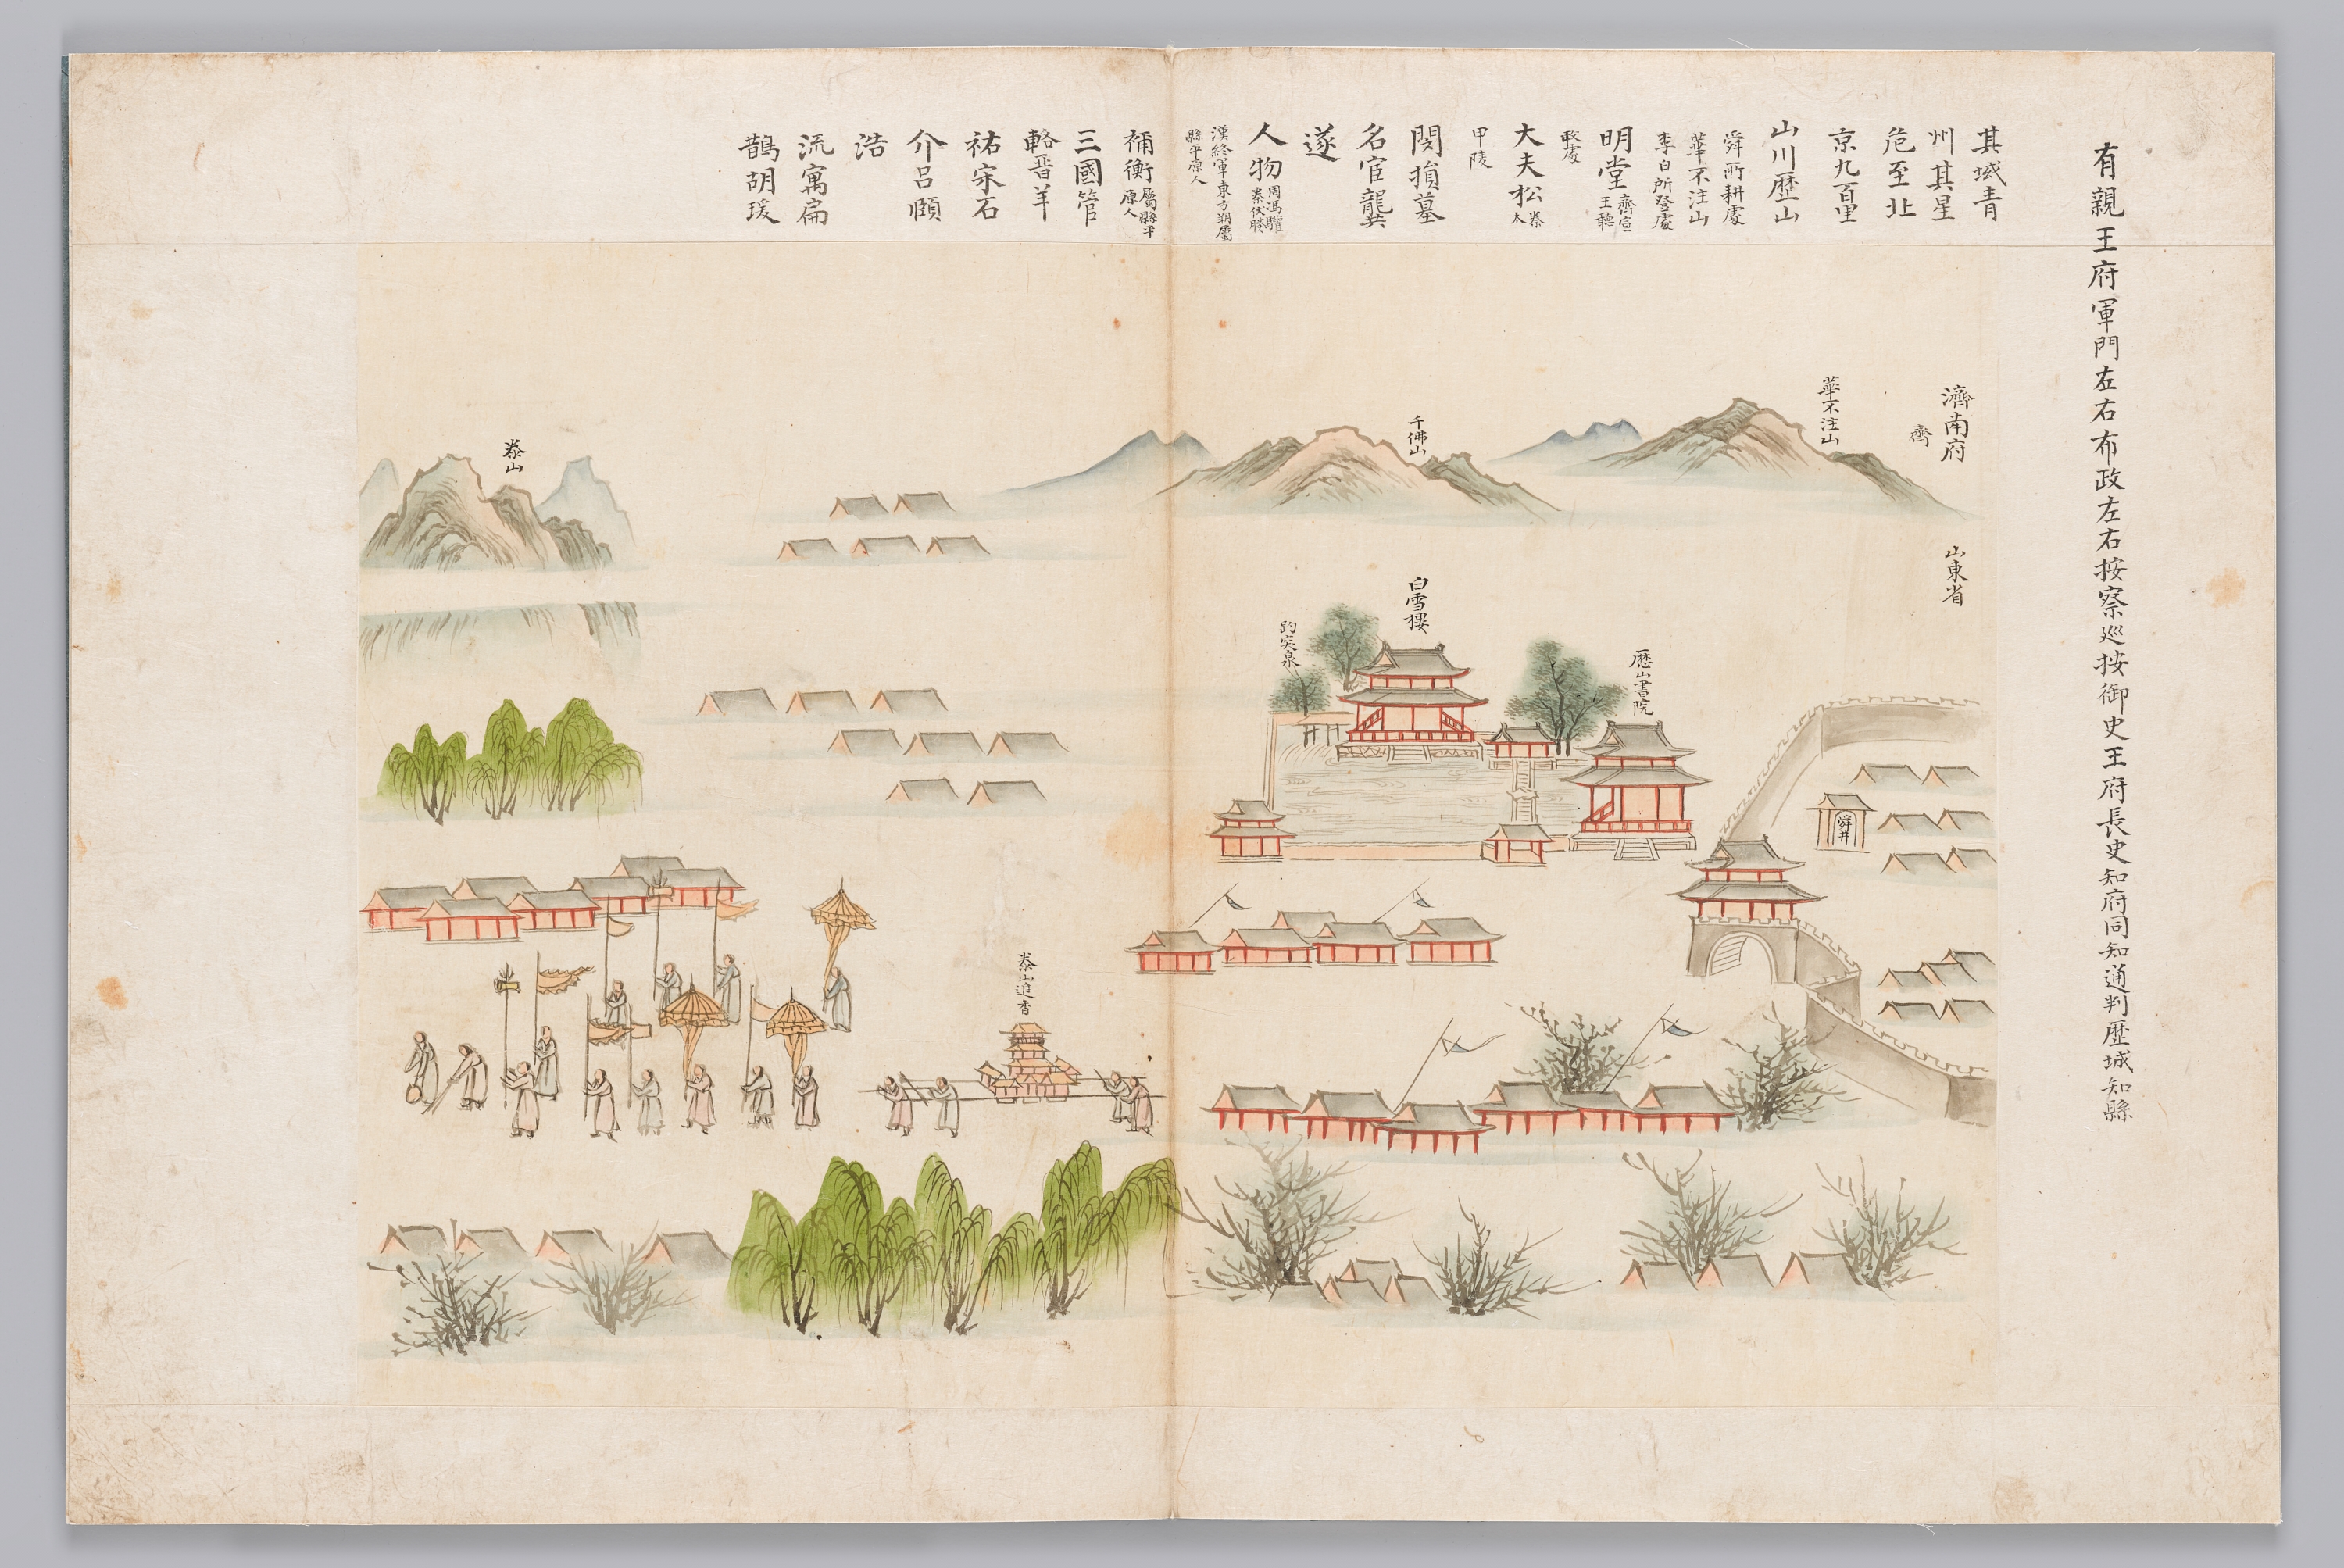 有親王府軍門左右布政左右按察巡按御史王府長史知府同知通判歷城知縣
其域青
州其星
危至北
京九百里
山川歷山
舜所耕處
華不注山
李白所登處
明堂齊宣
王聽
政處
大夫松泰
太
甲陵
閔損墓
名宦龍𢀜
遂
人物周馮驩
秦伏勝
漢終軍東方朔屬
縣平原人
禰衡屬縣平
原人
三國管
輅晉羊
祐宋石
介呂頤
浩
流寓扁
鵲胡瑗
濟南府
齊
山東省
華不注山
千佛山
泰山
白雪樓
趵突泉
歷山書院
舜井
泰山進香